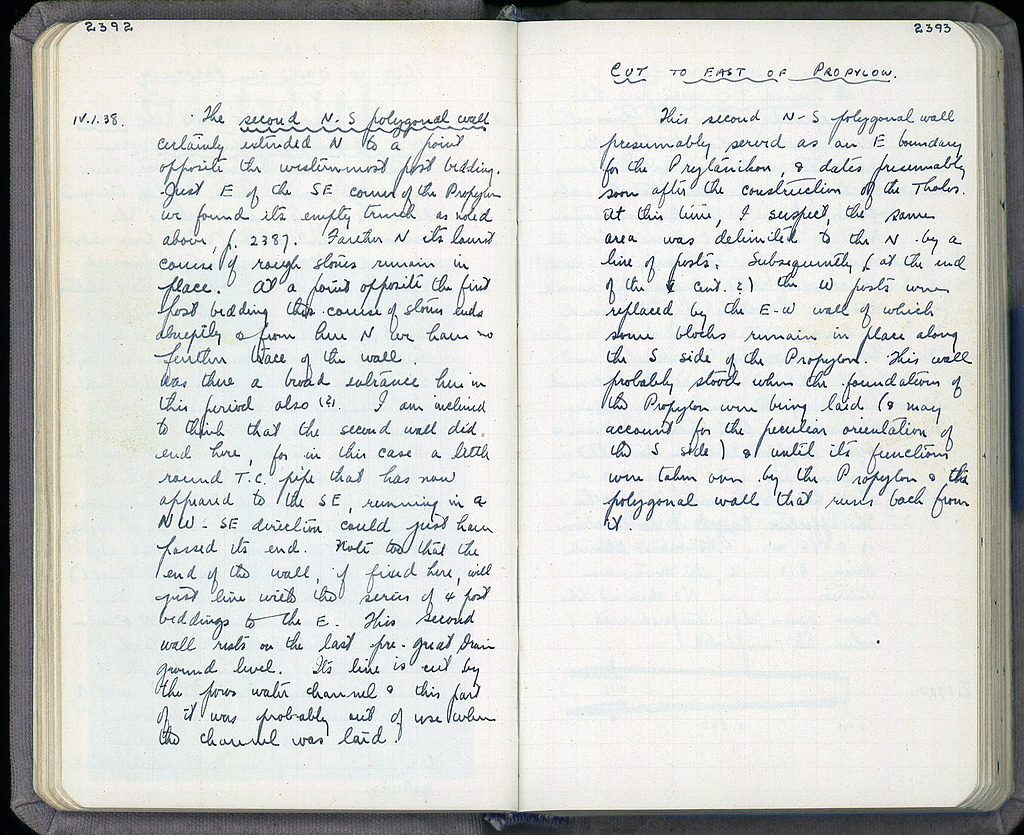 2392
IV.1.38. The second N-S polygonal wall
certainly extended N to a point
opposite the westernmost post bedding.
Just E of the SE corner of the Propylon
we found its empty trench as noted
above p. 2387. Farther N its lowest
course of rough stones remain in
place. At a point opposite the first
post bedding this course of stones ends
abruptly & from here N we have no
further trace of the wall.
Was there a broad entrance here in
this period also (?). I am inclined
to think that the second wall did
end here, for in this case a little
round T.C. pipe that has now
appeared to the SE, running in a
NW-SE direction could just have
passed its end. Note too that the
end of the wall, if fixed here, will
just line with the series of 4 post
beddings to the E. This second
wall rests on the last pre-great drain
ground level. Its line is cut by
the poros water channel & this part
of it was probably out of use when
the channel was laid.
2393
CUT TO EAST OF PROPYLON.
This second N-S polygonal wall
presumably served as an E boundary
for the Prytanikon, & dates presumably
soon after the construction of the Tholos.
At this time, I suspect, the same
area was delimited to the N by a
line of posts. Subsequently (at the end
of the V cent. ?) the W posts were
replaced by the E-W wall of which
some blocks remain in place along
the S side of the Propylon. This wall
probably stood when the foundations of
the Propylon were being laid (& may
account for the peculiar orientation of
the S side) & until its functions
were taken over by the Propylon & the
polygonal wall that runs back from
it.